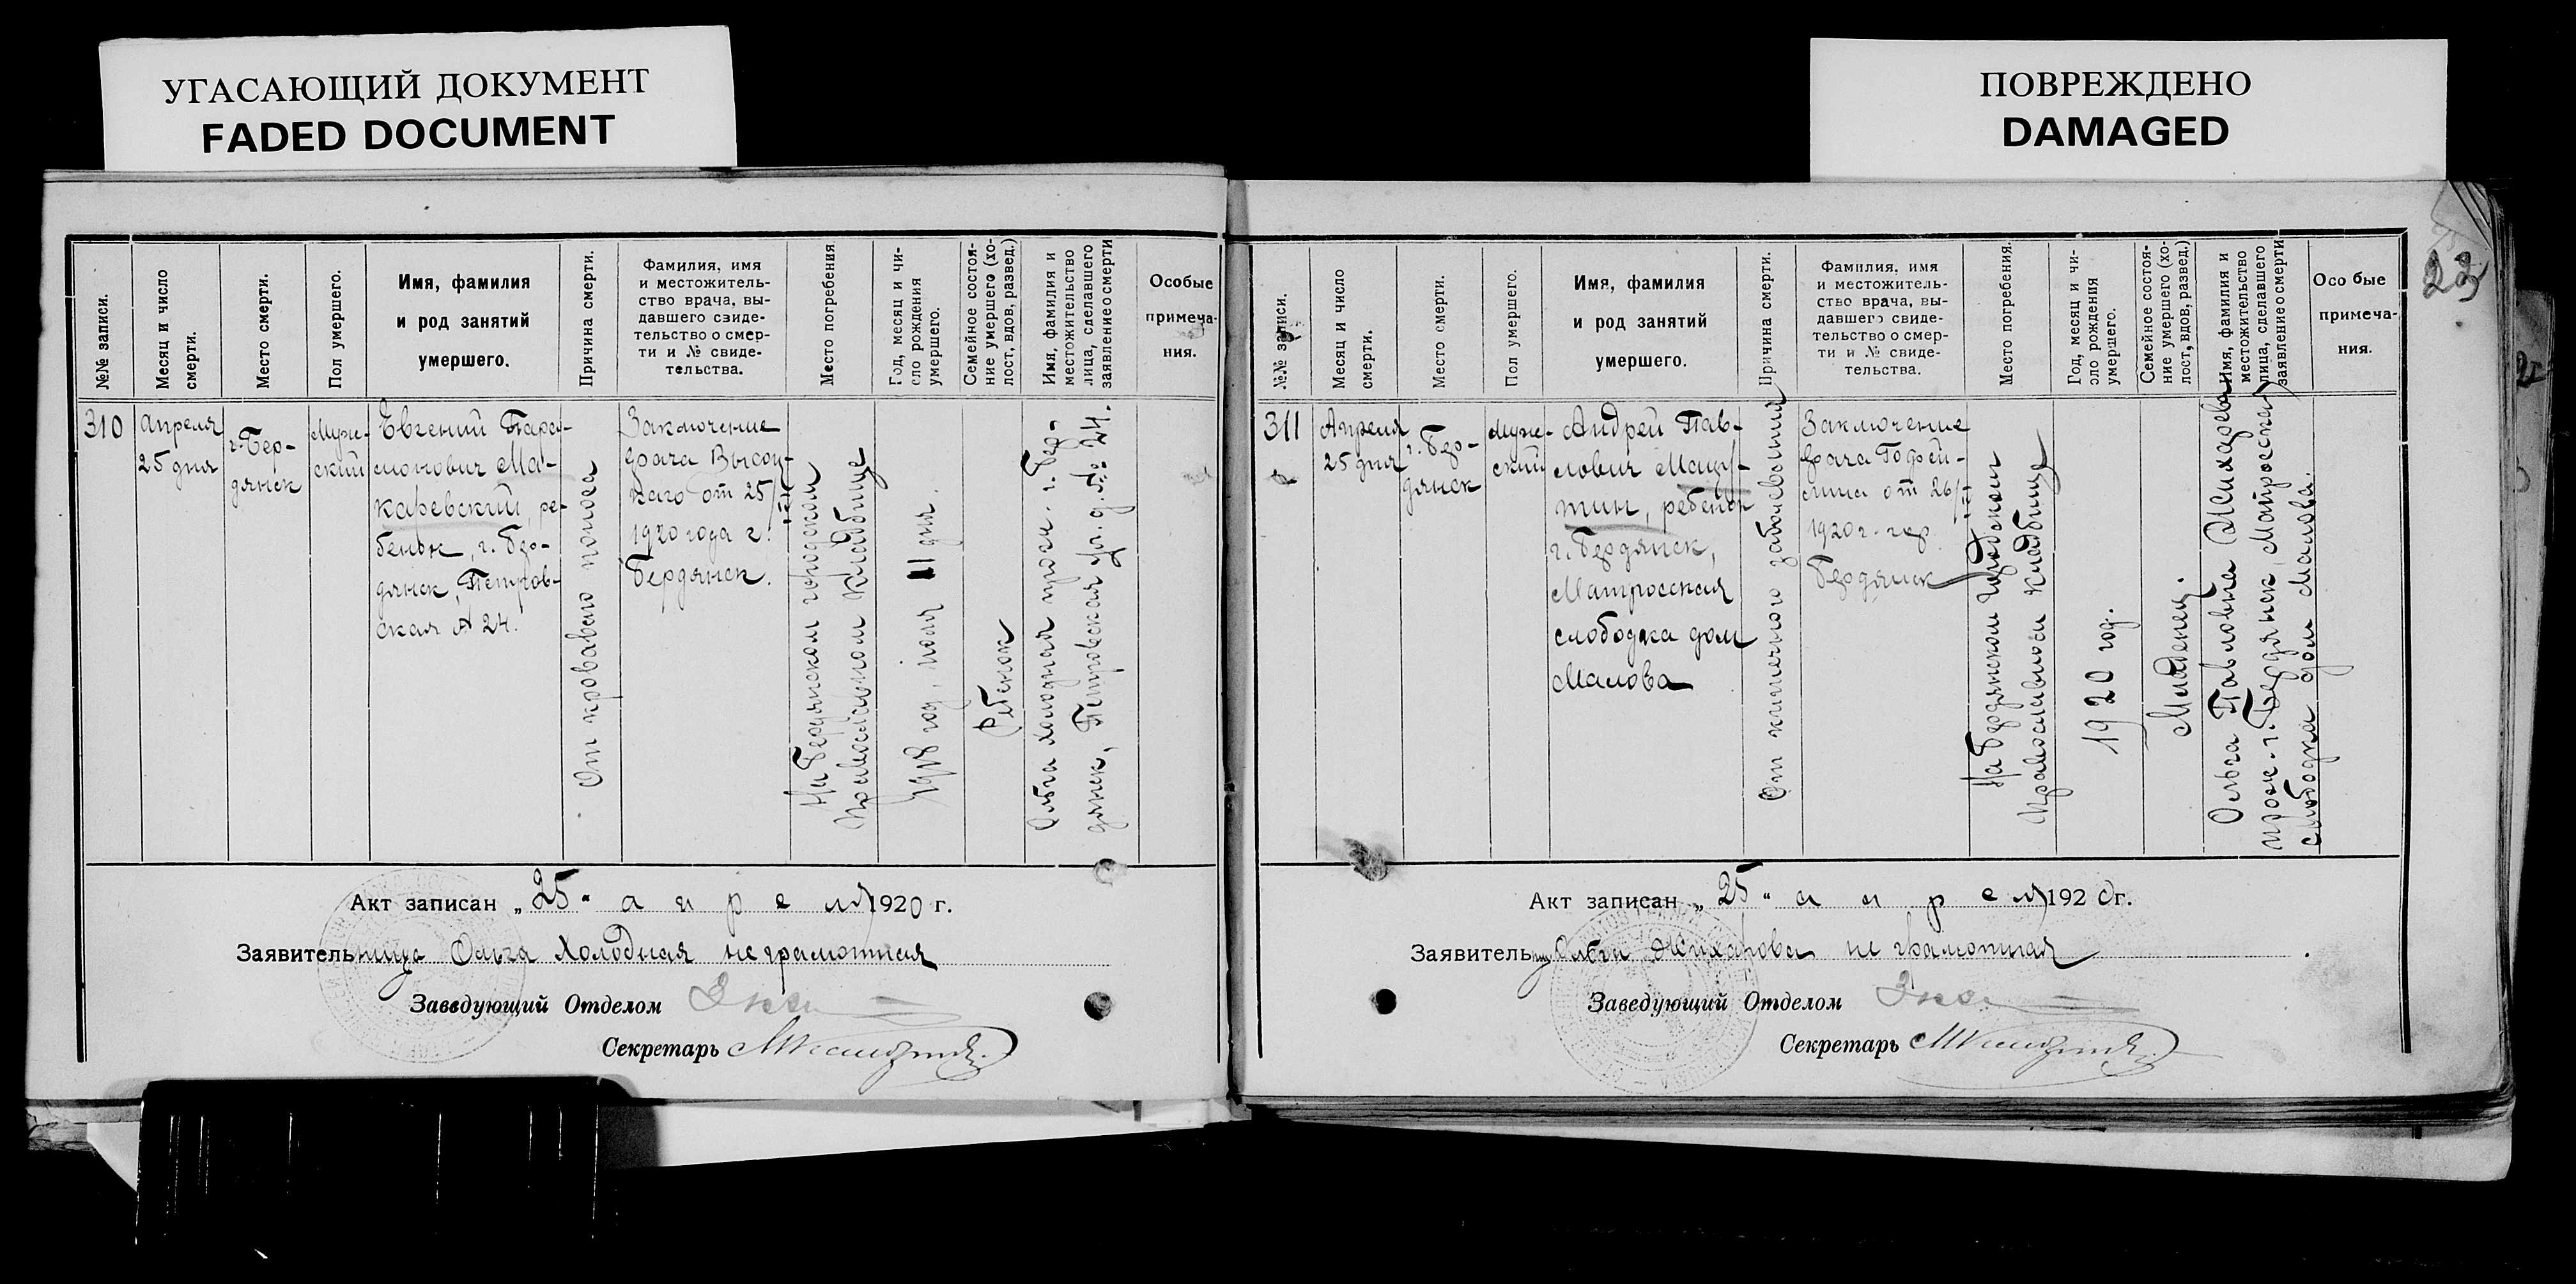 УГАСАЮЩИЙ ДОКУМЕНТ
FADED DOCUMENT
ПОВРЕЖДЕНО
DAMAGED
№№ записи.
Месяц и число
смерти.
Место смерти.
Пол умершего.
Имя, фамилия
и род занятий
умершего.
Причина смерти.
Фамилия, имя
и местожитель-
ство врача, вы-
давшего свиде-
тельство о смер-
ти и № свиде-
тельства.
Место погребения
Год, месяц и чи-
сло рождения
умершего.
Семейное состоя-
ние умершего (хо-
лост, вдов, развед.)
Имя, фамилия и
местожительство
лица, сделавшего
заявление о смерти
Особые
примеча-
ния.
310
Апреля
25 дня
г. Бер-
дянск
Муж-
ский
Евгений Пара-
монович Ма-
каревский, ре-
бенок, г. Бер-
дянск, Петров-
ская № 24.
От кровавого поноса
Заключение
врача Высоц-
каго от 25/IV
1920 года г.
Бердянск.
На Бердянском городском
Православном кладбище
1918 год, июля 11 дня.
Ребенок
Ольга Холодная прож. г. Бер-
дянск, Петровская ул. д. № 24.
Акт записан „25“ апреля 1920 г.
Заявительница Ольга Холодная неграмотная
Заведующий Отделом
Секретарь
23
№№ записи.
Месяц и число
смерти.
Место смерти.
Пол умершего.
Имя, фамилия
и род занятий
умершего.
Причина смерти.
Фамилия, имя
и местожитель-
ство врача, вы-
давшего свиде-
тельство о смер-
ти и № свиде-
тельства.
Место погребения.
Год, месяц и чи-
сло рождения
умершего.
Семейное состоя-
ние умершего (хо-
лост, вдов, развед.)
Имя, фамилия и
местожительство
лица, сделавшего
заявление о смерти
Особые
примеча-
ния.
311
Апреля
25 дня
г. Бер-
дянск
Муж-
ский
Андрей Пав-
лович Мацу-
тин, ребенок
г. Бердянск,
Матросская
слободка дом
Малова
От кишечного заболевания
Заключение
врача Гофей-
26/IV
1920 г. гор.
Бердянск
На Бердянском Городском
Православном кладбище
1920 год.
Младенец.
Ольга Павловна Жихарова
прож. г. Бердянск, Матросская
слободка дом Малова.
Акт записан „25“ апреля 1920 г.
Заявительница Ольга Жихарова не грамотная
Заведующий Отделом
Секретарь